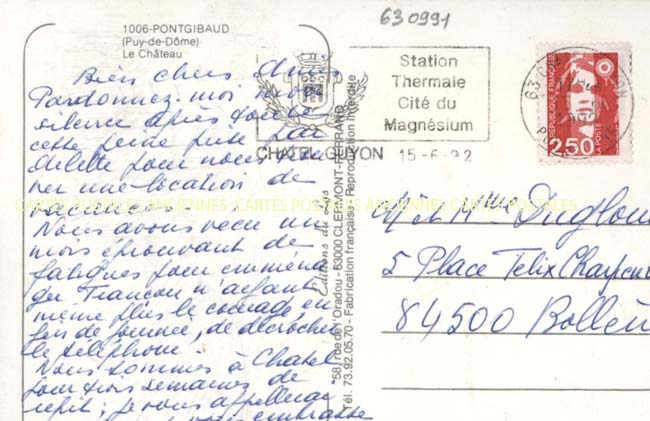 630991
1006-PONTGIBAUD
(Puy-de-Dôme)
Le Château
Bien chers
Pardonnez-moi mon
silence après toute
cette peine prise par
Odette pour nous
ner une location de
vacances.
Nous avons vécu un
mois éprouvant de
fatigues pour emména
ger Françou n'ayant
même plus le courage, en
fin de journée, de décrocher
le téléphone.
Nous sommes à Chatel
pour trois semaines de
répit ; je vous appellerai
vous embrasse
Station
Thermale
Cité du
Magnésium
CHATEL-GUYON 15-6-92
REPUBLIQUE FRANÇAISE
LA POSTE
2,50
Editions du Lys
58, rue de l'Oradou - 63000 CLERMONT-FERRAND
Tél. 73.92.05.70 - Fabrication française - Reproduction interdite
M et Mme
5 Place Félix Charpen
84500 Bollèn
CARTES POSTALES ANCIENNES CARTES POSTALES ANCIENNES CARTES POSTALES ANCIENNES